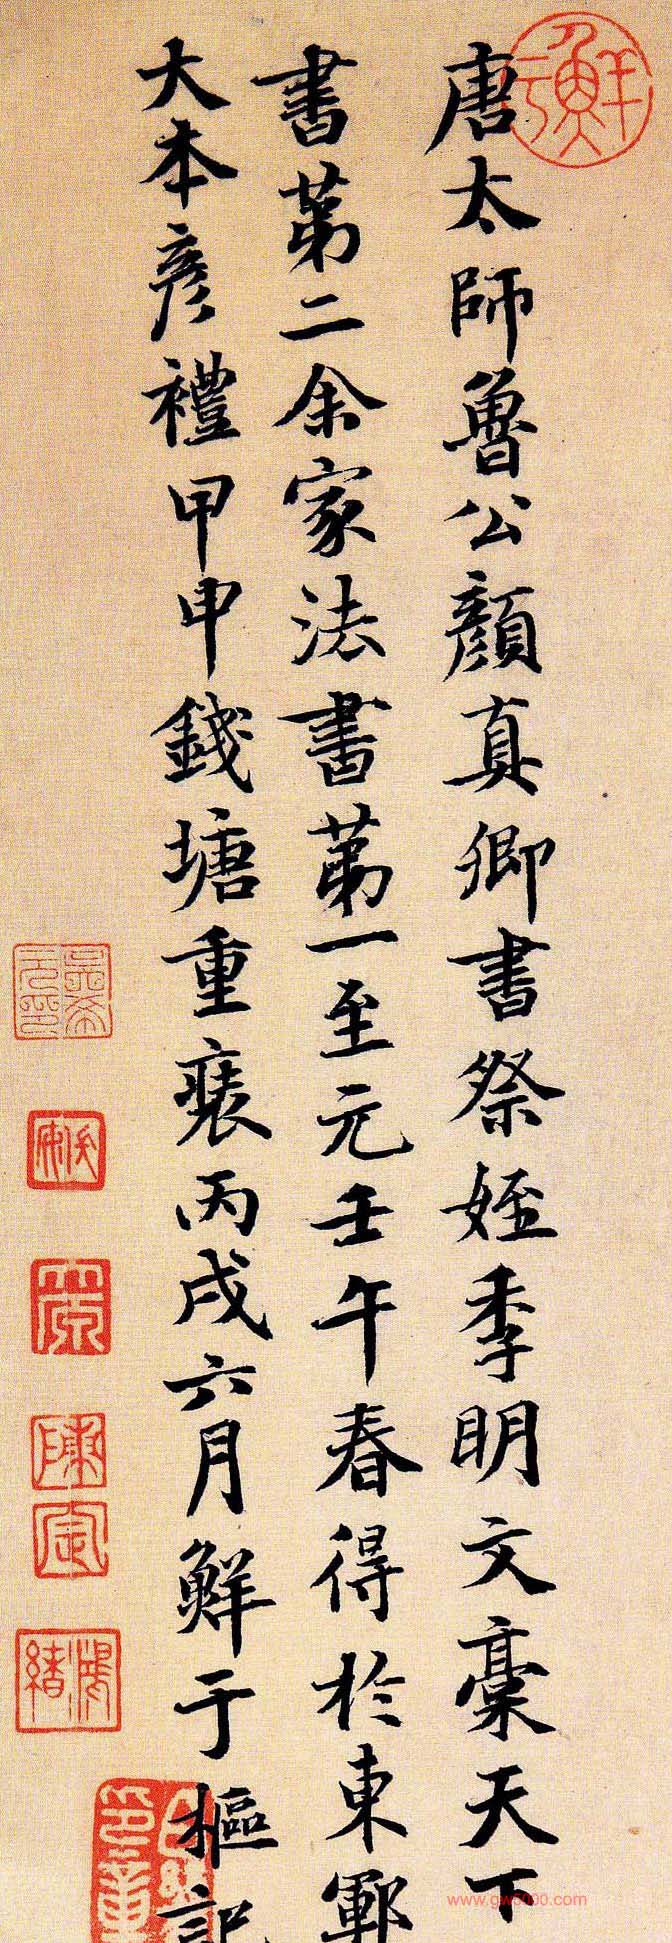 唐太師魯公顏真卿書祭姪季明文稾天下
書第二余家法書第一至元壬午春得於東鄆
大本彦禮甲申錢塘重裝丙戌六月鮮于樞記
www.gw5000.com